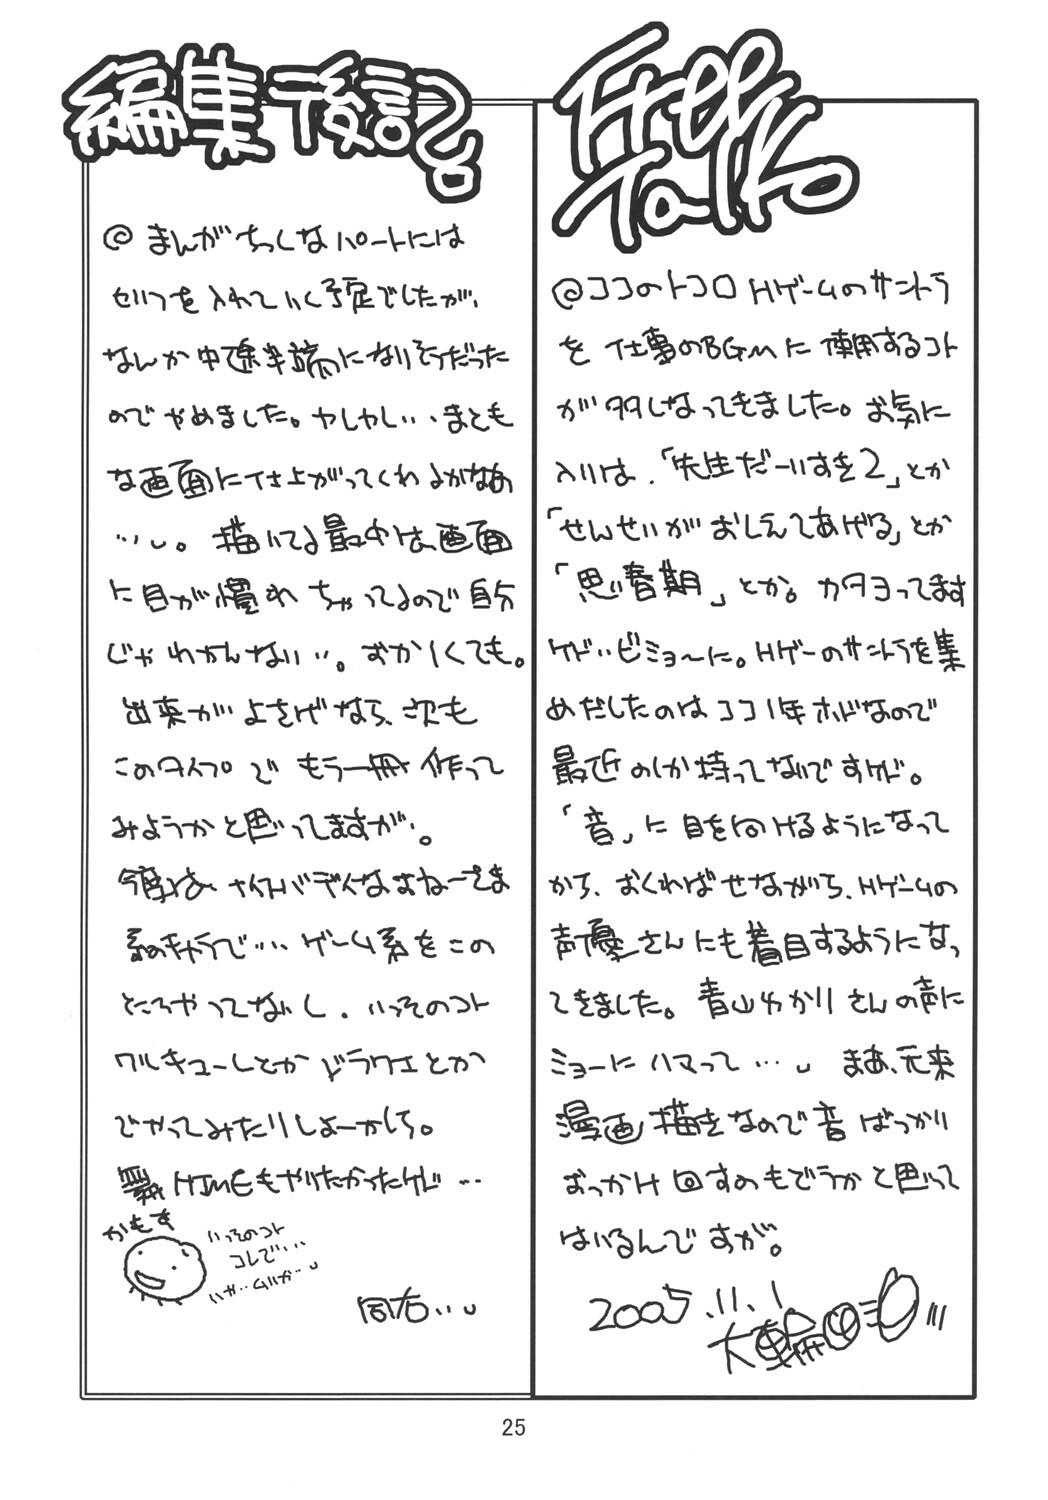 Free
Talk
@ココのトコロHゲームのサントラ
を仕事のBGMに使用するコト
が多くなってきました。お気に
入りは、「先生だーいすき2」とか
「せんせいがおしえてあげる」とか
「思春期」とか。カタヨってます
ケド‥ビミョ～に。Hゲーのサントラを集
めだしたのはココ1年ホドなので
最近のしか持ってないですけど。
「音」に目を向けるようになって
から、おくればせながら、Hゲームの
声優さんにも着目するようになっ
てきました。青山ゆかりさんの声に
ミョーにハマって…
まあ、元来
漫画描きなので音ばっかり
おっかけ回すのもどうかと思って
はいるんですが。
2005.11.1
大輪
編集後記
@まんがちっくなパートには
セリフを入れていく予定でしたが、
なんか中途半端になりそうだった
のでやめました。しかし‥、まとも
な画面に仕上がってくれるかなあ
…。描いてる最中は、画面
に目が慣れちゃってるので自分
じゃわかんない‥。おかしくても。
出来がよさげなら、次も
このタイプでもう一冊作って
みようかと思ってますが。
今度は、ナイスバディなおねーさま
系のキャラで…ゲーム系をこの
ところやってないし、いっそのコト
ワルキューレとかドラクエとか
でやってみたりしよーかしら。
舞HIMEもやりたかったけど…
かもす
いっそのコト
コレで…
いや‥ムリか‥
同右‥
25